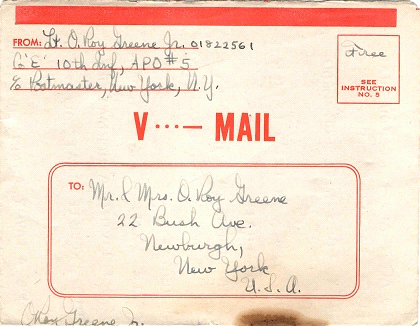 FROM: Lt. O. Roy Greene Jr. 01822561
Co "E" 10th Inf., APO #5
c/o Postmaster, New York, N.Y.
Free
SEE
INSTRUCTION
NO. 5
V ···— MAIL
TO: Mr. & Mrs. O. Roy Greene
22 Bush Ave.
Newburgh,
New York
U.S.A.
O Roy Greene Jr.